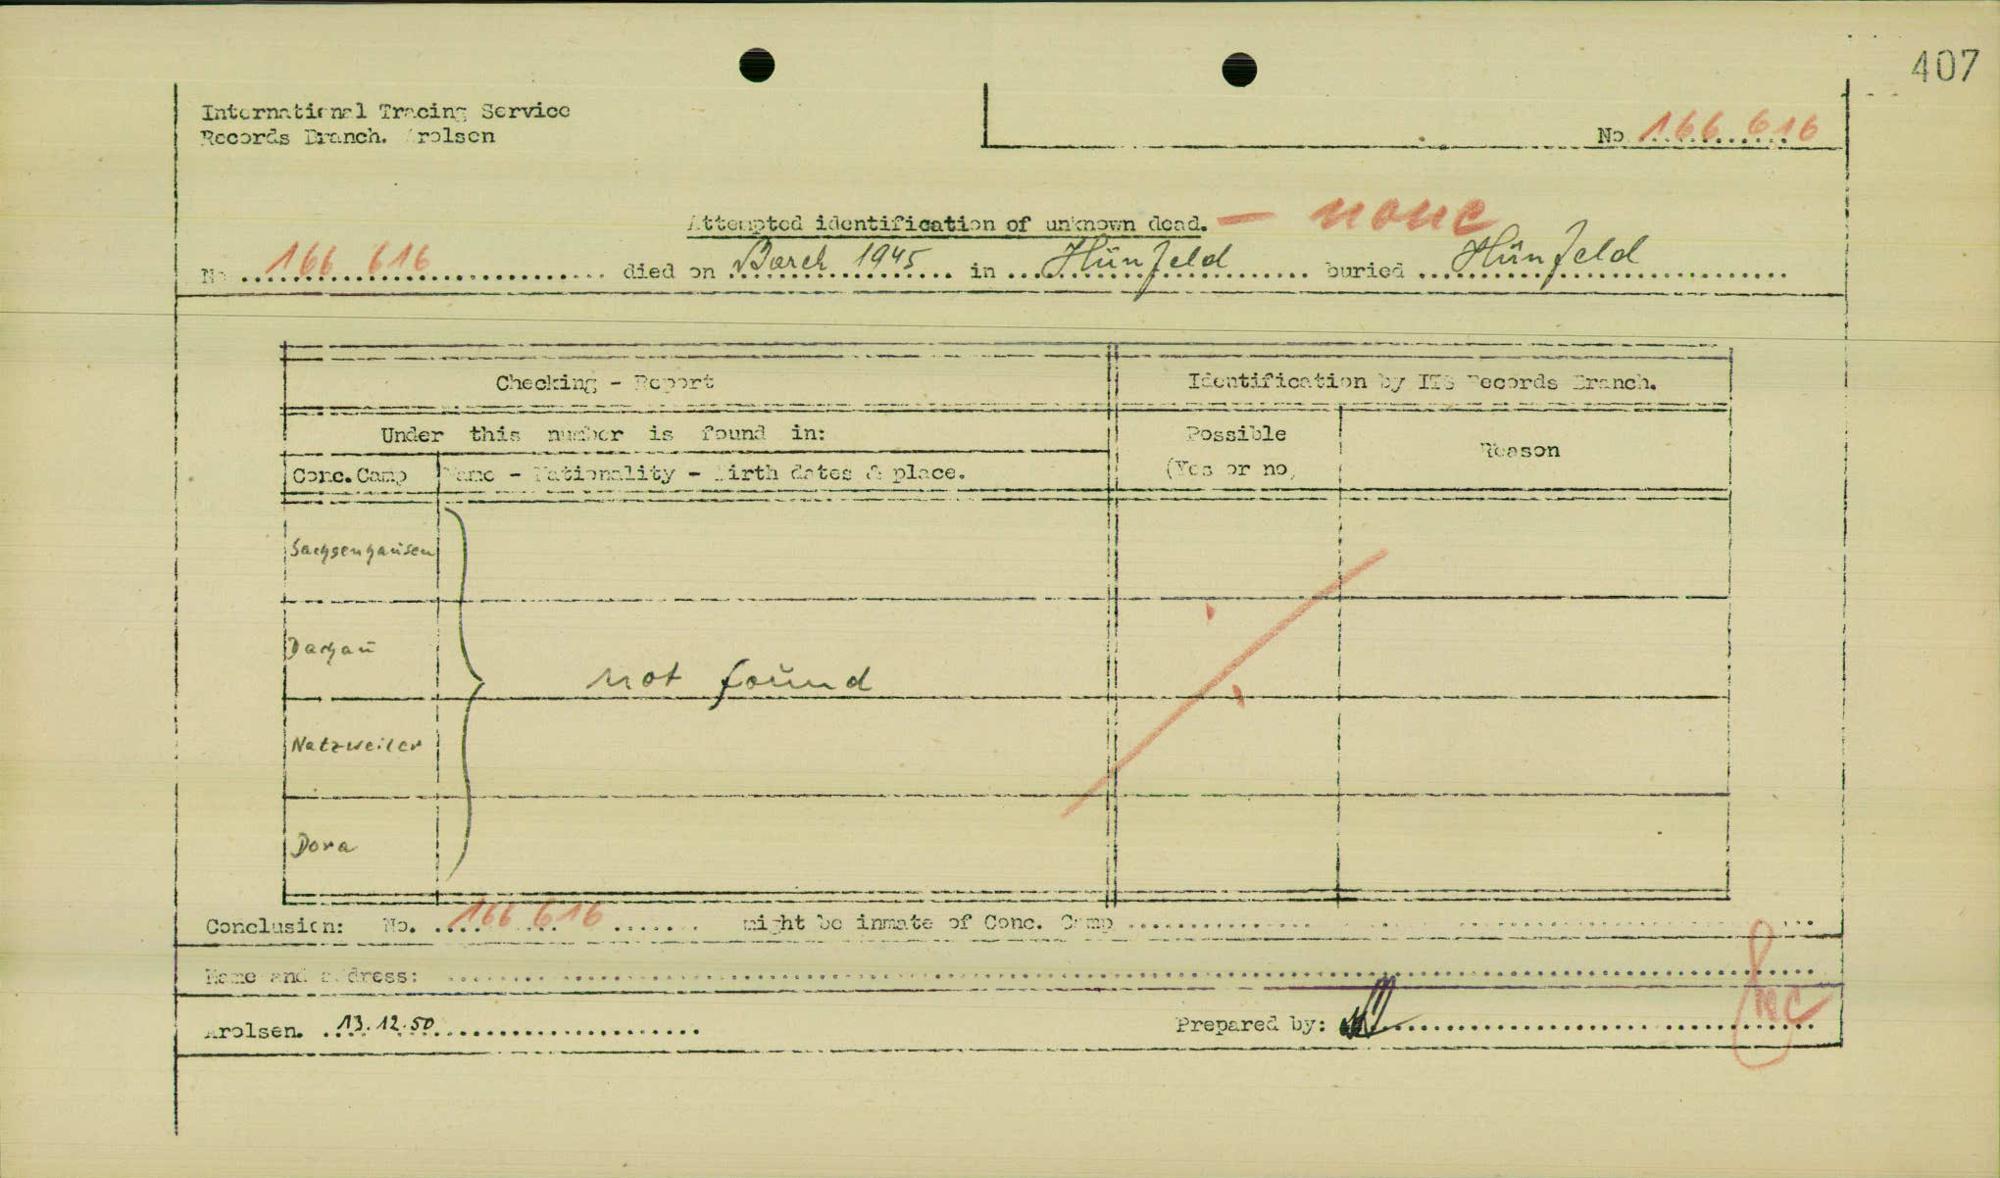 407
International Tracing Service
Records Branch. Arolsen
No 166 616
Attempted identification of unknown dead. - none
No 166 616 died on March 1945 in Hünfeld buried Hünfeld
Checking - Report
Identification by ITS Records Branch.
Under this number is found in:
Possible
(Yes or no)
Reason
Conc. Camp
Name - Nationality - Birth dates & place.
Sachsenhausen
Dachau
not found
Natzweiler
Dora
Conclusion: No. 166 616 might be inmate of Conc. Camp
Name and address:
Arolsen. 13.12.50
Prepared by: